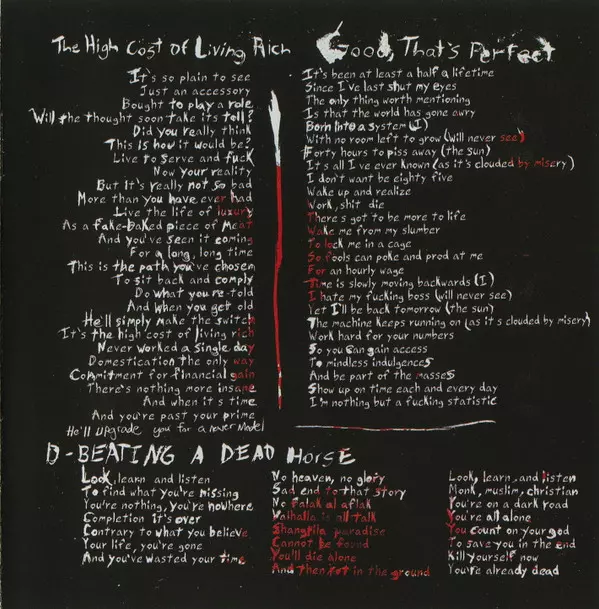 The High Cost of Living Rich
It's so plain to see
Just an accessory
Bought to play a role
Will the thought soon take its toll?
Did you really think
This is how it would be?
Live to serve and fuck
Now your reality
But it's really not so bad
More than you have ever had
Live the life of luxury
As a fake-baked piece of meat
And you've seen it coming
For a long, long time
This is the path you've chosen
To sit back and comply
Do what you're told
And when you get old
He'll simply make the switch
It's the high cost of living rich
Never worked a single day
Domestication the only way
Commitment for financial gain
There's nothing more insane
And when it's time
And you're past your prime
He'll upgrade you for a newer model
Good, That's Perfect
It's been at least a half a lifetime
Since I've last shut my eyes
The only thing worth mentioning
Is that the world has gone awry
Born into a system (I)
With no room left to grow (will never see)
Forty hours to piss away (the sun)
It's all I've ever known (as it's clouded by misery)
I don't want be eighty five
Wake up and realize
Work, shit die
There's got to be more to life
Wake me from my slumber
To lock me in a cage
So fools can poke and prod at me
For an hourly wage
Time is slowly moving backwards (I)
I hate my fucking boss (will never see)
Yet I'll be back tomorrow (the sun)
The machine keeps running on (as it's clouded by misery)
Work hard for your numbers
So you can gain access
To mindless indulgences
And be part of the masses
Show up on time each and every day
I'm nothing but a fucking statistic
D-BEATING A DEAD HORSE
Look, learn and listen
To find what you're missing
You're nothing, you're nowhere
Completion it's over
Contrary to what you believe
Your life, you're gone
And you've wasted your time
No heaven, no glory
Sad end to that story
No Falak al aflak
Walhalla is all talk
Shangrila paradise
Cannot be found
You'll die alone
And then rot in the ground
Look, learn, and listen
Monk, muslim, christian
You're on a dark road
You're all alone
You count on your god
To save you in the end
Kill yourself now
You're already dead